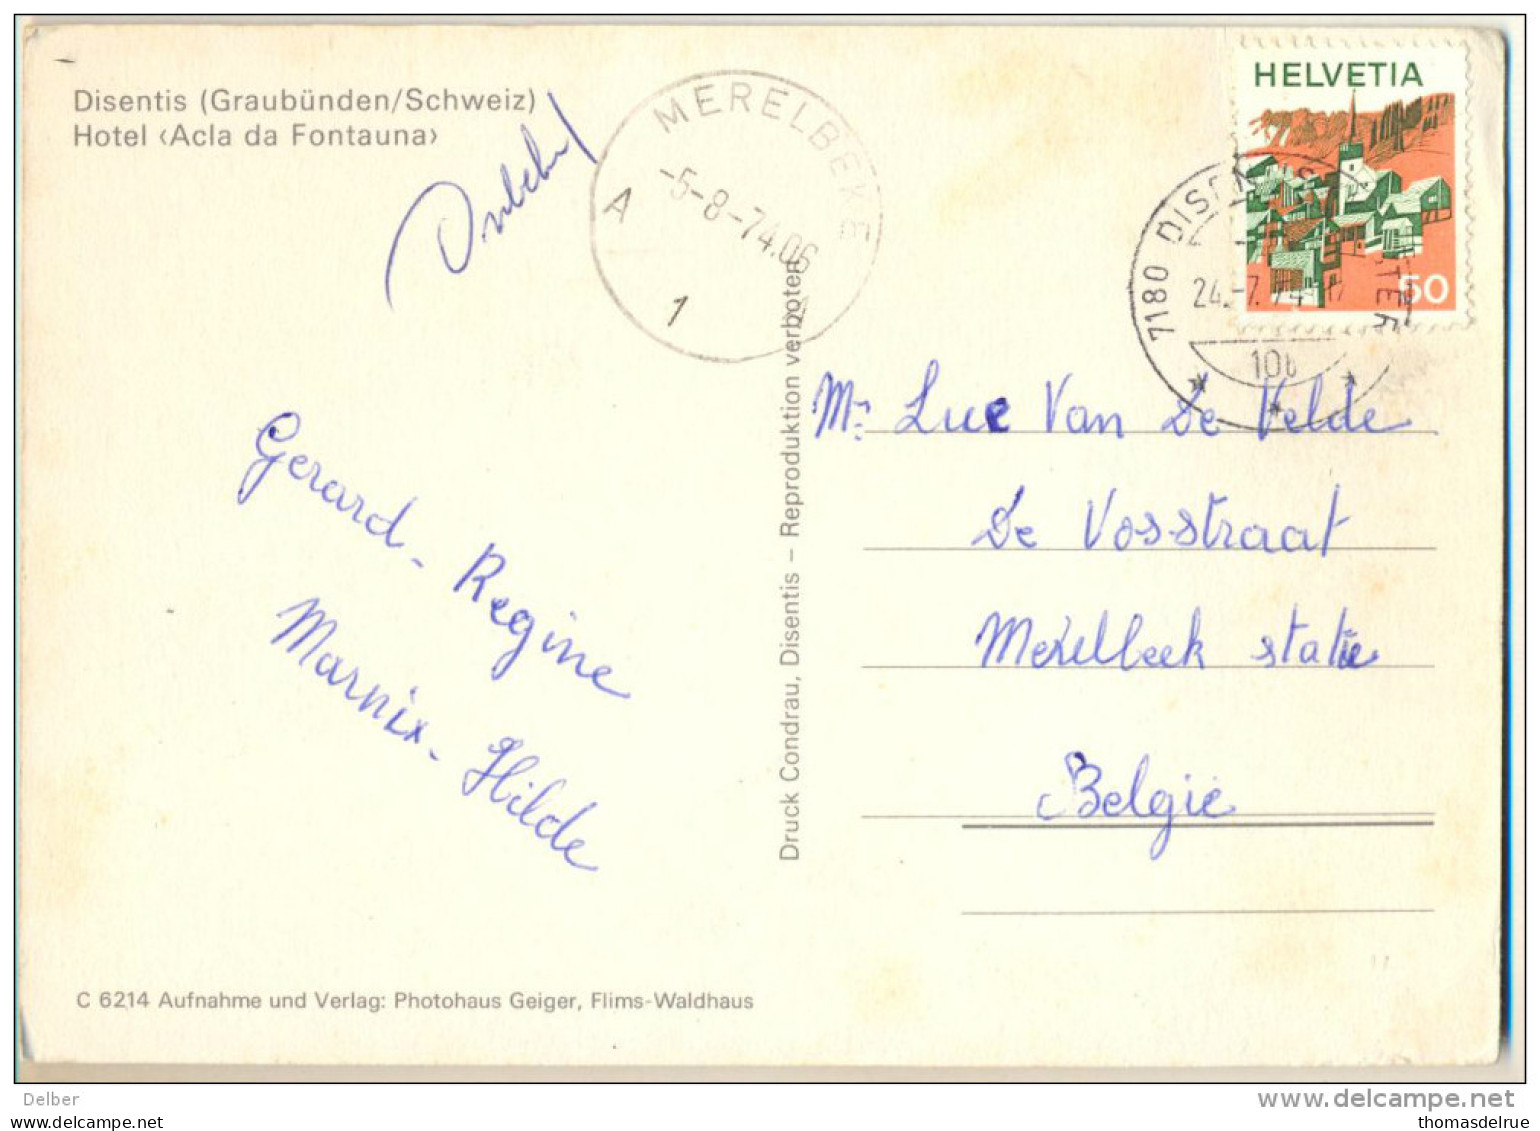 Disentis (Graubünden/Schweiz)
Hotel ‹Acla da Fontauna›
MERELBEKE
-5-8-74.06
A
1
HELVETIA
50
7180 DISENTIS
24.-7.74
Gerard - Regine
Marnix - Hilde
Druck Condrau, Disentis – Reproduktion verboten
Mr Luc Van De Velde
De Vosstraat
Merelbeek statie
België
C 6214 Aufnahme und Verlag: Photohaus Geiger, Flims-Waldhaus
Delber
www.delcampe.net
www.delcampe.net
thomasdelrue